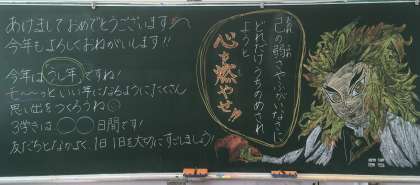 あけましておめでとうございます!!
今年もよろしくおねがいします!!
今年はうし年ですね!
モ〜〜っといい年になるようにたくさん
思い出をつくろうね
3学きは○○日間です!
友だちとなかよく1日1日を大切にすごしましょう!
己の弱さやふがいなさに
どれだけうちのめされ
ようと
心を燃やせ!!